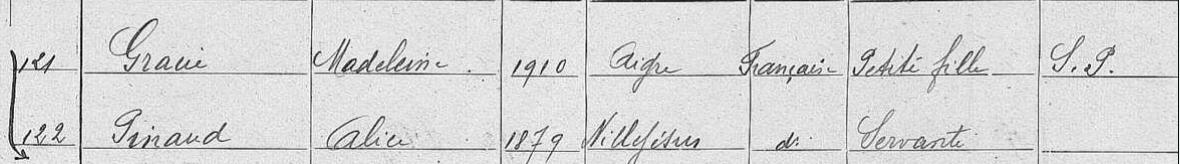 121 Gracie Madeleine 1910 Aigre Française Petite fille S.P.
122 Pinaud Alice 1879 Villejésus dº Servante